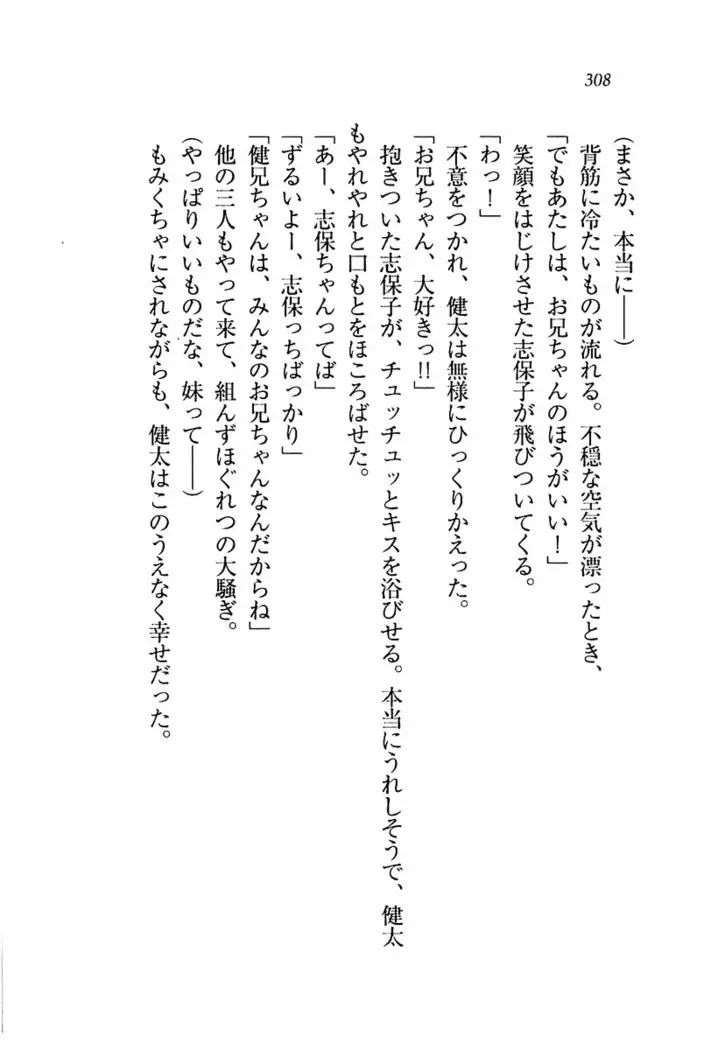 308
(まさか、本当に――)
背筋に冷たいものが流れる。不穏な空気が漂ったとき、
「でもあたしは、お兄ちゃんのほうがいい！」
笑顔をはじけさせた志保子が飛びついてくる。
「わっ！」
不意をつかれ、健太は無様にひっくりかえった。
「お兄ちゃん、大好きっ!!」
抱きついた志保子が、チュッチュッとキスを浴びせる。本当にうれしそうで、健太
もやれやれと口もとをほころばせた。
「あー、志保ちゃんってば」
「ずるいよー、志保っちばっかり」
「健兄ちゃんは、みんなのお兄ちゃんなんだからね」
他の三人もやって来て、組んずほぐれつの大騒ぎ。
(やっぱりいいものだな、妹って――)
もみくちゃにされながらも、健太はこのうえなく幸せだった。